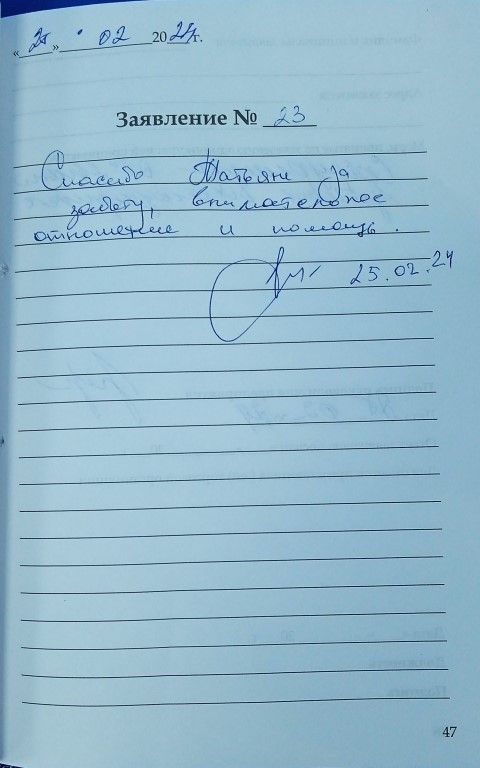 «25» 02 2024г.
Заявление № 23
Спасибо Татьяне за
заботу, внимательное
отношение и помощь.
25.02.24
47